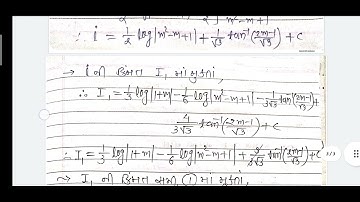 ∴ i = 1/2 log|m²-m+1| + 1/√3 tan⁻¹(2m-1/√3) + c
→ i ની કિંમત I₁ માં મુકતાં,
∴ I₁ = 1/3 log|1+m| - 1/6 log|m²-m+1| - 1/3√3 tan⁻¹(2m-1/√3) +
4/3√3 tan⁻¹(2m-1/√3) + c
∴ I₁ = 1/3 log|1+m| - 1/6 log|m²-m+1| + 3/3√3 tan⁻¹(2m-1/√3) + c
→ I₁ ની કિંમત ① માં મુકતાં,